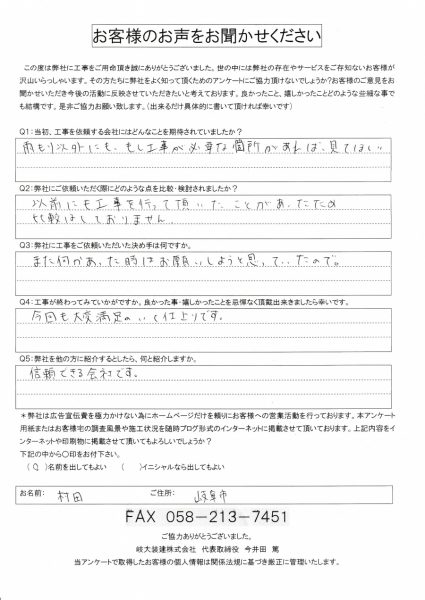 お客様のお声をお聞かせください
この度は弊社に工事をご用命頂き誠にありがとうございました。世の中には弊社の存在やサービスをご存知ないお客様が
沢山いらっしゃいます。その方たちに弊社をよく知って頂くためのアンケートにご協力頂けないでしょうか?お客様のご意見をお
聞かせいただき今後の活動に反映させていただきたいと考えております。良かったこと、嬉しかったことどのような些細な事で
も結構です。是非ご協力お願い致します。(出来るだけ具体的に書いて頂ければ幸いです)
Q1:当初、工事を依頼する会社にはどんなことを期待されていましたか?
雨もり以外にも、もし工事が必要な箇所があれば、見てほしい
Q2:弊社にご依頼いただく際にどのような点を比較・検討されましたか?
以前にも工事を行って頂いたことがあったため
比較はしておりません。
Q3:弊社に工事をご依頼いただいた決め手は何ですか。
また何かあった時はお願いしようと思っていたので。
Q4:工事が終わってみていかがですか。良かった事・嬉しかったことを忌憚なく頂戴出来きましたら幸いです。
今回も大変満足のいく仕上りです。
Q5:弊社を他の方に紹介するとしたら、何と紹介しますか。
信頼できる会社です。
＊弊社は広告宣伝費を極力かけない為にホームページだけを頼りにお客様への営業活動を行っております。本アンケート
用紙またはお客様宅の調査風景や施工状況を随時ブログ形式のインターネットに掲載させて頂いております。上記内容をイ
ンターネットや印刷物に掲載させて頂いてもよろしいでしょうか?
下記の中から〇印をお付下さい。
(〇)名前を出してもよい ( )イニシャルなら出してもよい
お名前: 村田 ご住所: 岐阜市
FAX 058-213-7451
ご協力ありがとうございました。
岐大装建株式会社 代表取締役 今井田 篤
当アンケートで取得したお客様の個人情報は関係法規に基づき厳正に管理いたします。